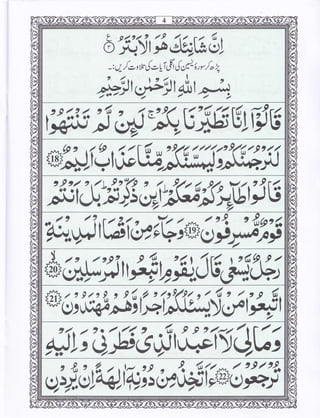 4
اِنَّ شَانِئَكَ هُوَ الْاَبْتَرُ ﴿۳﴾ ع
پڑھ کر سورۃ یٰسین کی اگلی آیات کی تلاوت کریں:۔
بِسْمِ اللّٰهِ الرَّحْمٰنِ الرَّحِيْمِ
قَالُوْٓا اِنَّا تَطَيَّرْنَا بِكُمْ ۚ لَئِنْ لَّمْ تَنْتَهُوْا
لَنَرْجُمَنَّكُمْ وَلَيَمَسَّنَّكُمْ مِّنَّا عَذَابٌ اَلِيْمٌ 18
قَالُوْا طَآئِرُكُمْ مَّعَكُمْ ؕ اَئِنْ ذُكِّرْتُمْ ؕ بَلْ اَنْتُمْ
قَوْمٌ مُّسْرِفُوْنَ 19 وَجَآءَ مِنْ اَقْصَا الْمَدِيْنَةِ
رَجُلٌ يَّسْعٰى قَالَ يٰقَوْمِ اتَّبِعُوا الْمُرْسَلِيْنَ ۙ 20
اتَّبِعُوْا مَنْ لَّا يَسْـَٔلُكُمْ اَجْرًا وَّهُمْ مُّهْتَدُوْنَ 21
وَمَالِيَ لَآ اَعْبُدُ الَّذِيْ فَطَرَنِيْ وَ اِلَيْهِ
تُرْجَعُوْنَ 22 ءَاَتَّخِذُ مِنْ دُوْنِهٖٓ اٰلِهَةً اِنْ يُّرِدْنِ